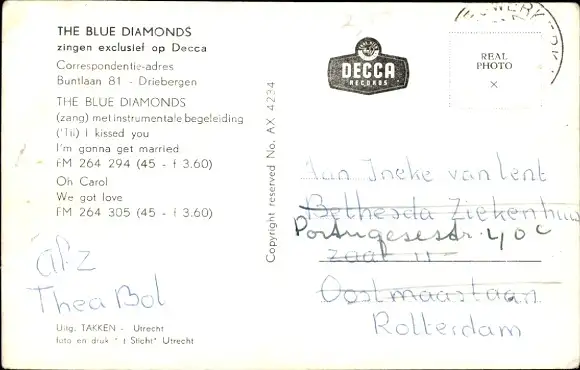 THE BLUE DIAMONDS
zingen exclusief op Decca
Correspondentie-adres
Buntlaan 81 - Driebergen
THE BLUE DIAMONDS
(zang) met instrumentale begeleiding
('Til) I kissed you
I'm gonna get married
FM 264 294 (45 - f 3.60)
Oh Carol
We got love
FM 264 305 (45 - f 3.60)
afz
Thea Bol
Uitg. TAKKEN - Utrecht
foto en druk "'t Sticht" Utrecht
Copyright reserved No. AX 4234
DECCA
RECORDS
REAL
PHOTO
×
Aan Ineke van Lent
Bethesda Ziekenhuis
Portugesestr. 40 c
zaal 11
Oostmaaslaan
Rotterdam